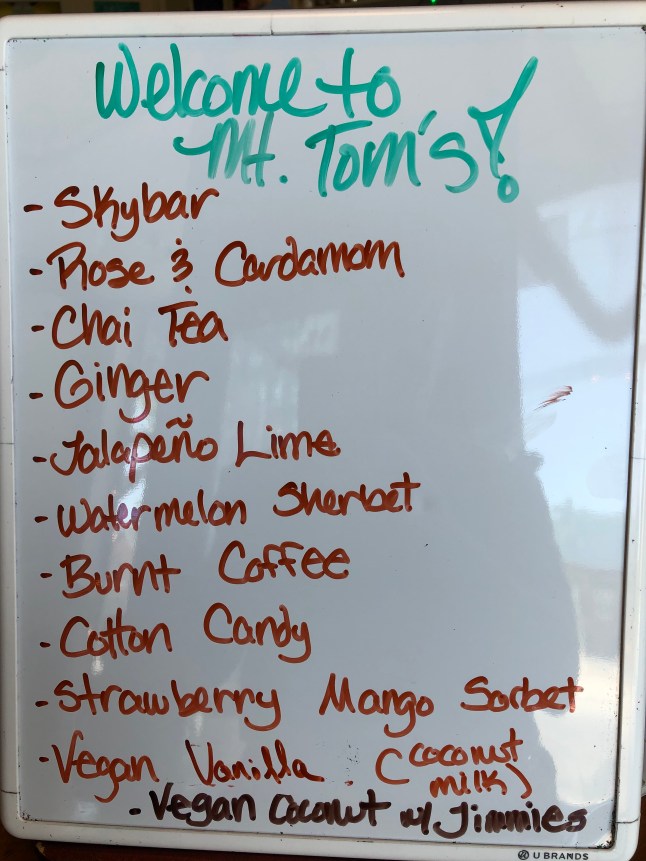 Welcome to
Mt. Tom's!
- Skybar
- Rose & Cardamom
- Chai Tea
- Ginger
- Jalapeño Lime
- Watermelon Sherbet
- Burnt Coffee
- Cotton Candy
- Strawberry Mango Sorbet
- Vegan Vanilla (coconut
milk)
- Vegan Coconut w/ Jimmies
U BRANDS